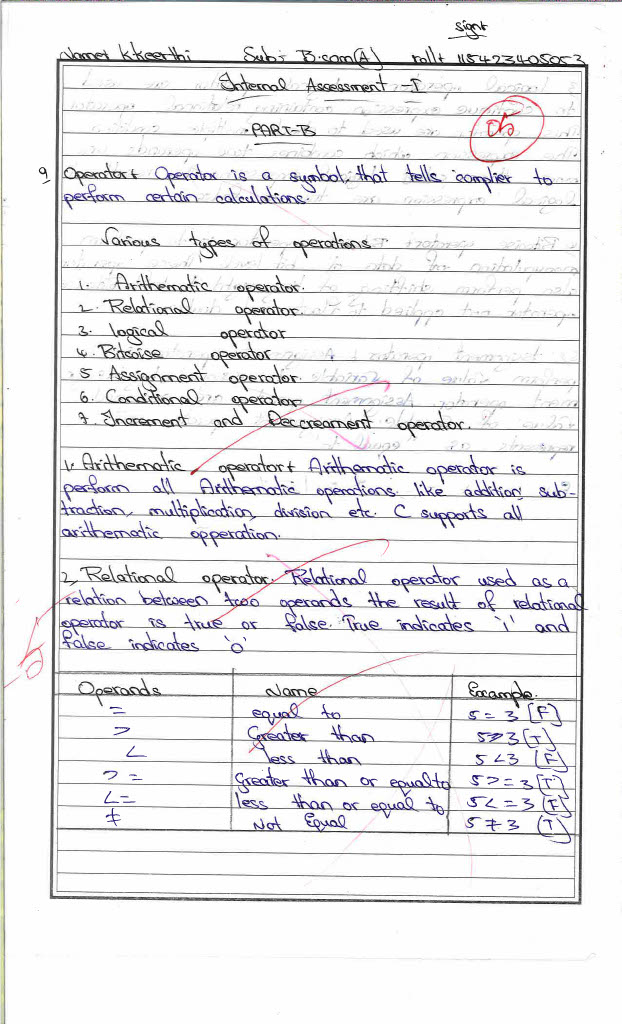 signt
Name: K Keerthi Sub: B.com(A) roll: 115423405053
Internal Assessment - I
05
PART-B
9 Operator: Operator is a symbol, that tells complier to
perform certain calculations.
Various types of operations:
1. Arithematic operator.
2. Relational operator.
3. logical operator
4. Bitwise operator
5. Assignment operator.
6. Conditional operator
7. Increment and Deccreament operator.
1. Arithematic operator: Arithematic operator is
perform all Arithematic operations like addition, sub-
traction, multiplication, division etc. C supports all
arithematic opperation.
2. Relational operator. Relational operator used as a
relation between two operands the result of relational
operator is true or false. True indicates '1' and
false indicates 'o'
Operands Name Example.
= equal to 5 = 3 [F]
> Greater than 5>3 [T]
< less than 5<3 [F]
> = Greater than or equal to 5>=3 [T]
<= less than or equal to 5<=3 [F]
≠ Not Equal 5≠3 [T]